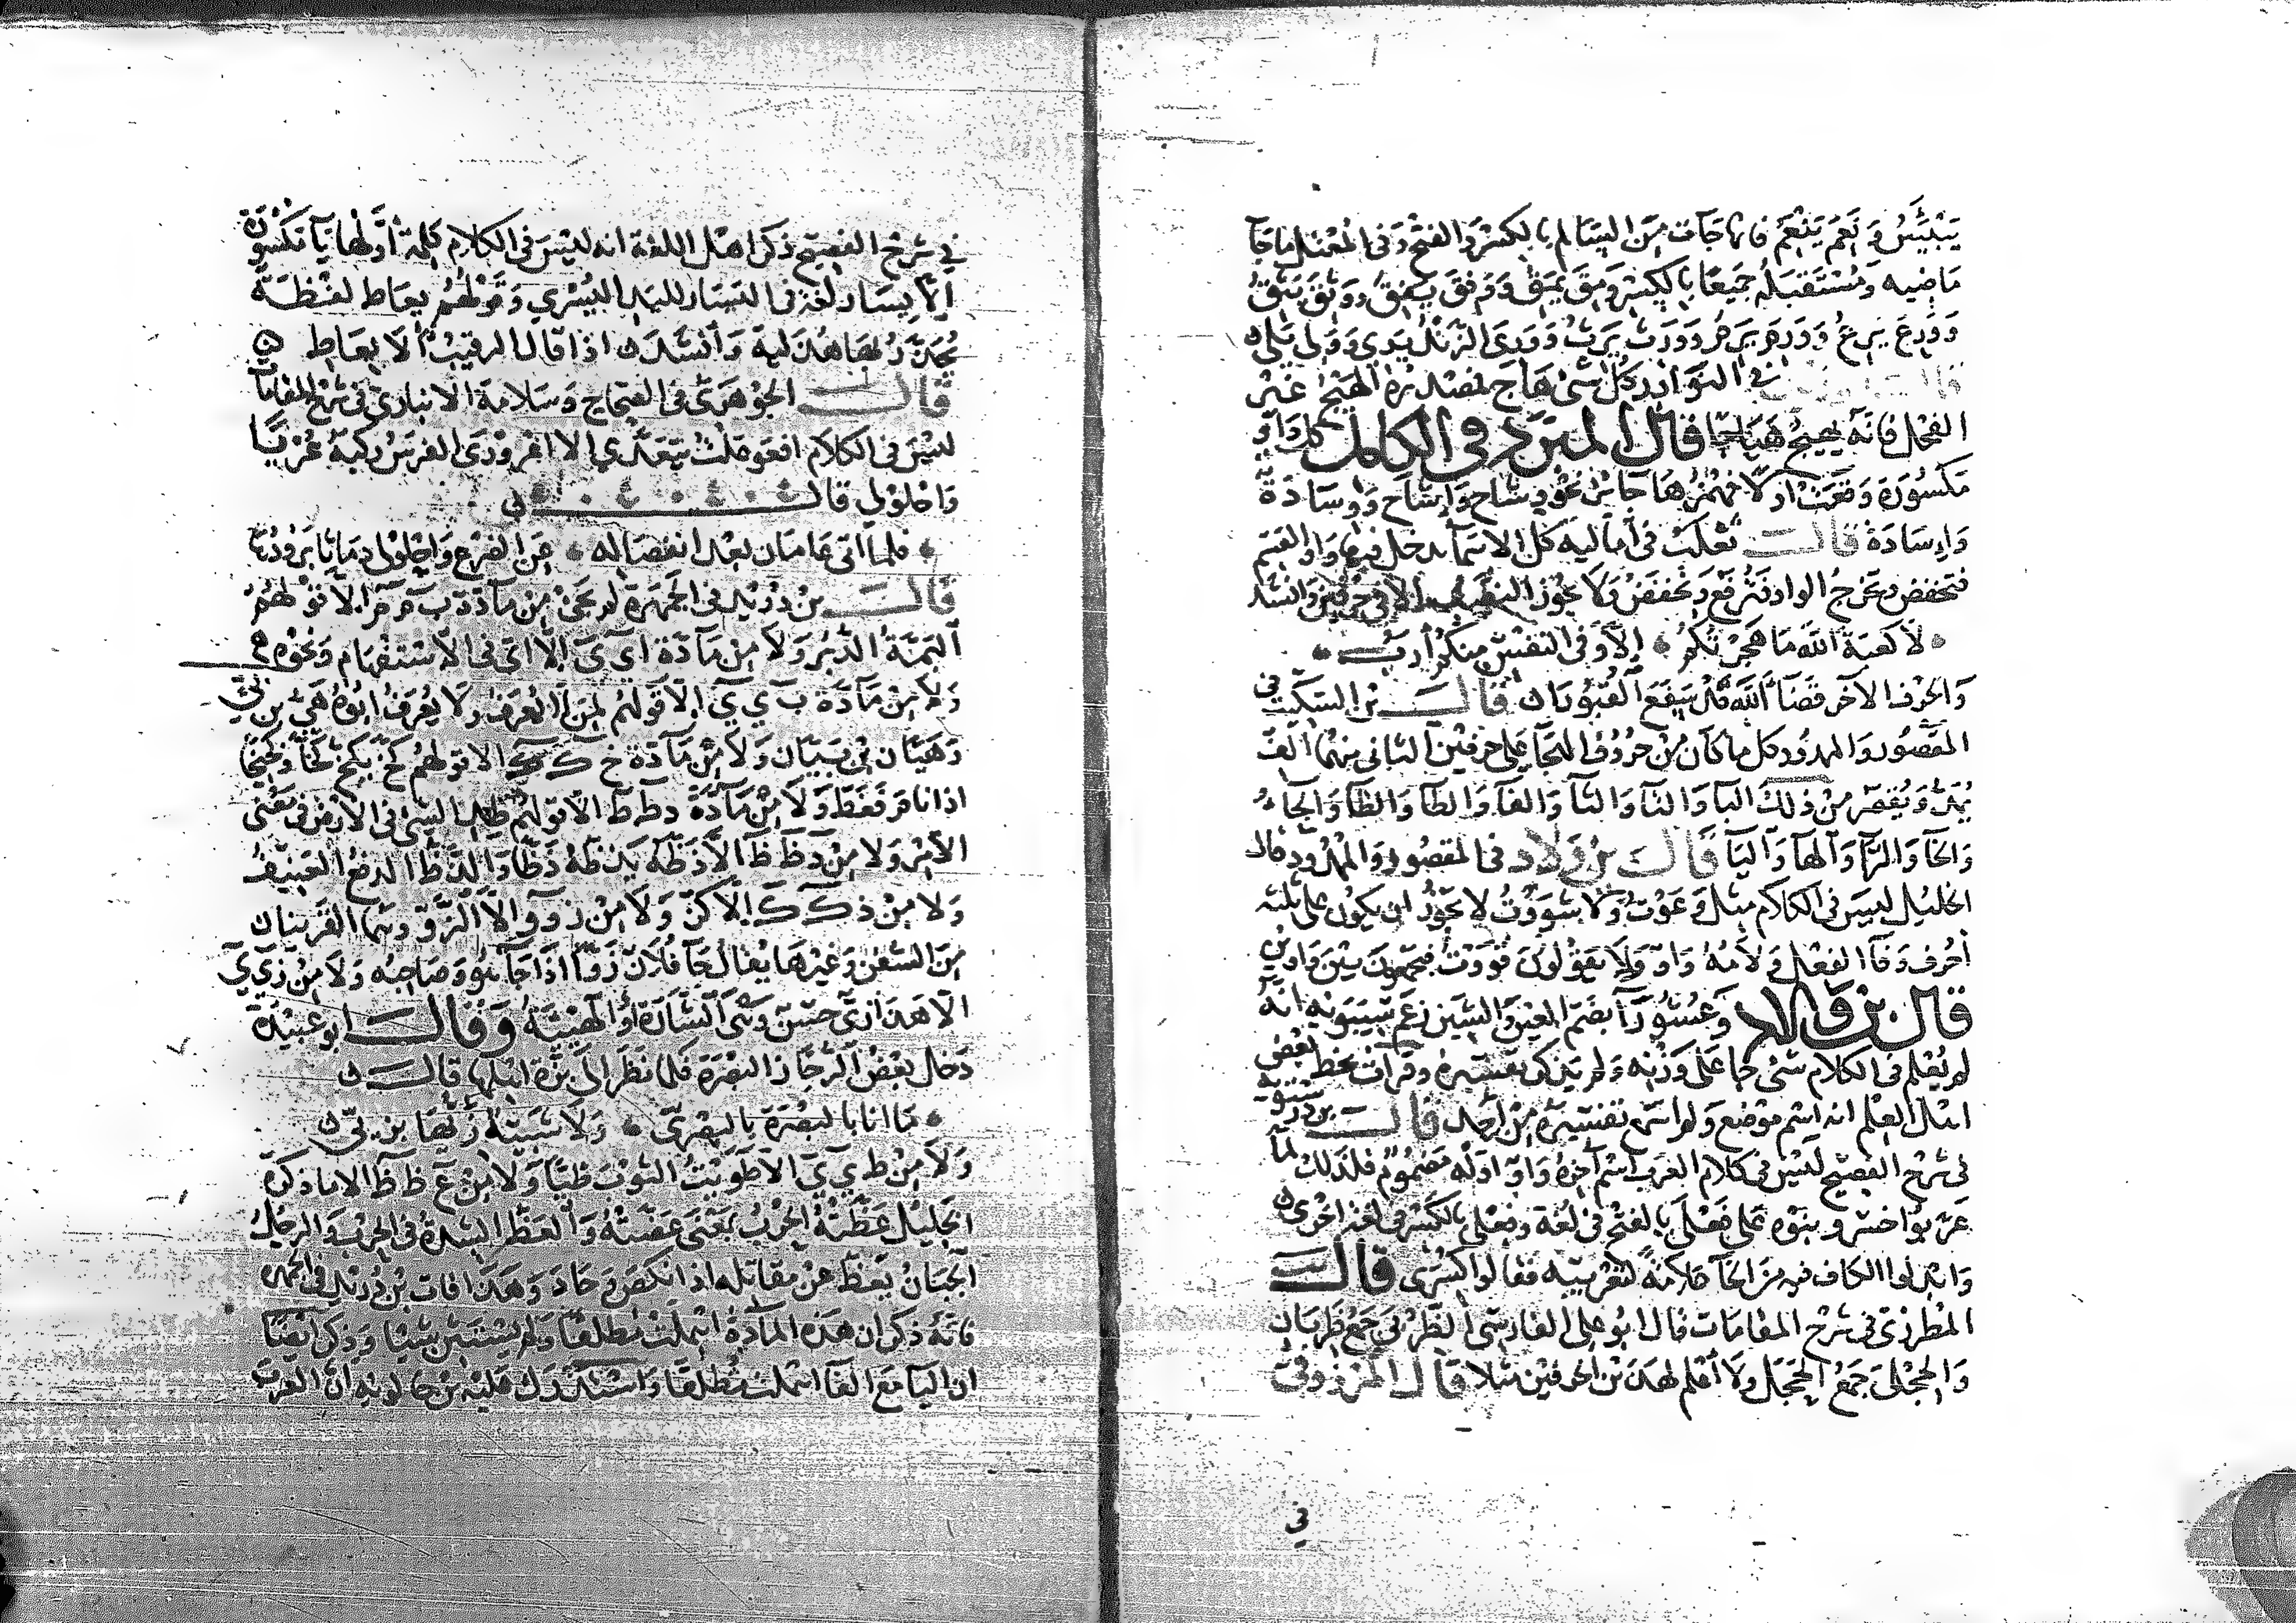 يَبْئِسُ وَنَعِمَ يَنْعِمُ فانها جَآت مِنَ السَّالم بالكسْرِ وَالفتْح وَفى المُعْتَل مَا جَآ
مَاضيه وَمُسْتَقبَلهُ جَميعًا بِالكِسْرِ وَمِقَ يَمِقُ وَوَفِقَ يَفِقُ وَوَثِقَ يَثِقُ
وَوَرِعَ يَرِعُ وَوَرِمَ يَرِمُ وَوَرِثَ يَرِثُ وَوَرِىَ الزَّنْدُ يَرِي وَوَلِىَ يَلِى
في النَّوَادر كلُّ شئ هَاجَ فمصْدَرُهُ الهَيْجُ غَيْر
الفحْل فانَّهُ يَهِيْجُ هِيَاجًا قال المبَرّد في الكامل كل وَاوٍ
مَكسُورَة وَقعَتْ اولا فهَمْزُهَا جَائز نحْو وِشَاح وَإشَاح وَوِسَادَة
وَإسَادَة قالــ ثعْلبْ فى أماليه كل الاسمَآ يدخل فيها وَاو القسَم
فتخفض وتخرج الواو فترفَع وَتخفضُ وَلا يجُوز النصْب الا فى حَرفين وَانشد
لا كَعبَةُ اللَّه مَا هَجَرْتكُمُ إلَّا وَفى النفْس مِنكمُ أرَبُ
وَالحَرْف الآخر قضَآ اللَّه قدْ سَفَعَ القبُورَا قالــ بن السكيت في
المقصُور وَالممدُود كل ما كان مِنْ حُرُوف الهجَآ على حَرفيْن الثانى منهُمَا الف
يُمَدُّ وَيُقصَر مِنْ ذلك البآ وَالتآ وَالثآ وَالفآ وَالطآ وَالظآ وَالحآء
وَالخآ وَالرَّآ وَالهآ وَاليآ قالَــ بن وَلاد فى المقصُور وَالممْدُود قال
الخليْل ليْسَ فى الكلام مثل وَعَوْتُ وَلا شوَوْتُ لا يجُوْزُ ان يكوْنَ على ثلثَه
أحْرُف وَفآ الفعْل وَلامُهُ وَاوٌ وَلا يَقوْلوْنَ قووْت فيجمعُونَ بيْنَ وَاوَينِ
قال بن وَلاد وَعُشُوْرَآ بضَمّ العين وَالشين زعَم سيبوَيه انهُ
لم يُعْلم فى الكلام شئ جَآ عَلى وَزْنه وَلم يَذكرْ تفسيرهُ وقرأت بخط بَعْض
اهْل العِلْم انه اسْم مَوْضع وَلم اسْمَعْ تفسِيْرهُ مِنْ أحَد قالــ بن درستويه
فى شرْح الفصيْح ليْسَ فى كلام العَرَب اسْم آخره وَاوٌ اوّله مَضمُوْم فلذلك لمَّا
عَرّبوا خسْرو بنوْه عَلى فَعْلَى بالفتْح فى لُغة وَفِعْلى بالكسْر فى لغة اخْرَى
وَابْدلوا الكاف فيه مِن الخآ عَلامَةً لتعْريبه فقالوا كِسْرَى قالــ
المُطرزى فى شرْح المقامَات قال ابُو على الفارسى الظِّرْبى جَمعُ ظَرِبَان
وَالحِجْلى جَمْعُ الحَجَل وَلا أعْلم لهذَيْن الحرفيْن مثلا قال المرْزوقى
فى
في شرْح الفصيْح ذكرَ اهْل اللغة انه ليْسَ فى الكلام كلِمةٌ اوَّلهَا يآ مَكْسُورَة
الا يِسَار لغة فى اليَسَار لليَد اليُسْرَي وَقوْلهُم يِعَاط لفْظَة
يُحَذَّرُ بهَا هُذَليَّة وَأنشدَ اذا قال الرقيْبُ ألا يِعَاطِ ۞
قالَــ الجَوْهَريّ فى الصحَاح وَسَلامَة الانبارى فى شرْح المقامات
ليْسَ فى الكلام افعَوْعَلتُ يتَعَدَّي إلا اعْرَوْرَى الفرَسَ رَكبَهُ عُرْيًا
وَاحْلوْلى قالــ
فلمّا اتى عَامَان بَعْد انفصَاله عَن الضرْع وَاحْلوْلى دمَاثا يَرُوْدُهَا
قالَــ بن دُرَيْد فى الجَمْهَرَة لم يَجئ مِن مَآدّة ب م م الا قوْلهُمُ
البَمَّةُ الدُّبُر وَلا مِن مَآدّة أ ي ي الا اىّ فى الاسْتفهَام وَنحْوه
وَلا مِنْ مَآدّة ب ي ي الا قوْلهُم لمَن لا يُعْرَف وَلا يُعْرَفُ ابُوْهُ هَيّ بن بَيّ
وَهَيَّان بْن بَيَّان وَلا مِنْ مَآدّة خ ك ك الا قولهُم كخّ يَكِخّ كخًّا وَكخِيْخًا
اذا نام فغَطّ وَلا مِنْ مَآدّة د ط ط الا قوْلهُم طد الشئ فى الارْض فى مَعْنى
الأمْر وَلا مِنْ د ظ ظ الا دَظَّهُ يَدُظّهُ دَظًّا وَالدَّظّ الدفعُ العَنيْفُ
وَلا مِنْ ذ ك ك إلّا كذّ وَلا مِنْ ز و و إلا الزَّوّ وَهمَا القرينان
مِنَ السُّفن وَغيْرهَا يُقال جَآ فُلان زَوًّا اذا جَآ هُوَ وَصَاحبُه وَلا مِنْ ز ي ي
الا هَذا زيّ حَسَن وَهىَ الشَّارَة أو الهَيْئَة وَقالــ ابو عبيْدَة
دَخل بَعْضُ الرُّجَّاز البَصْرَة فلمّا نظَر الى بزَّة اهْلهَا قالــ
مَا انا بالبَصْرَة بالبِصْريّ وَلا شَبِيْه زِيُّهَا بِزِيّى
وَلا مِنْ ط ي ي الا طَوَيْتُ الثوْبَ طيًّا وَلا مِنْ ع ظ ظ الا ما ذكرَهُ
الخليْل عَظّتهُ الحَرْبُ بمَعْنَى عَضّتهُ وَالعَظّ الشدّةُ فى الحَرْب وَالرجُلُ
الجَبَانُ يَعِظّ عَنْ مقاتله اذا نكصَ وَحَادَ وَهَذا فات بْن دُرَيْد فى الجمهرة
فانّهُ ذكر ان هَذه المآدَّةُ اهْملتْ مُطلقًا وَلم يسْتثن شيْئا وَذكر ايْضًا
ان اليآ مَع الفآ اهْملت مُطلقًا وَاسْتدْرَك عَليْه بن خالويه انَّ العَرَبَ